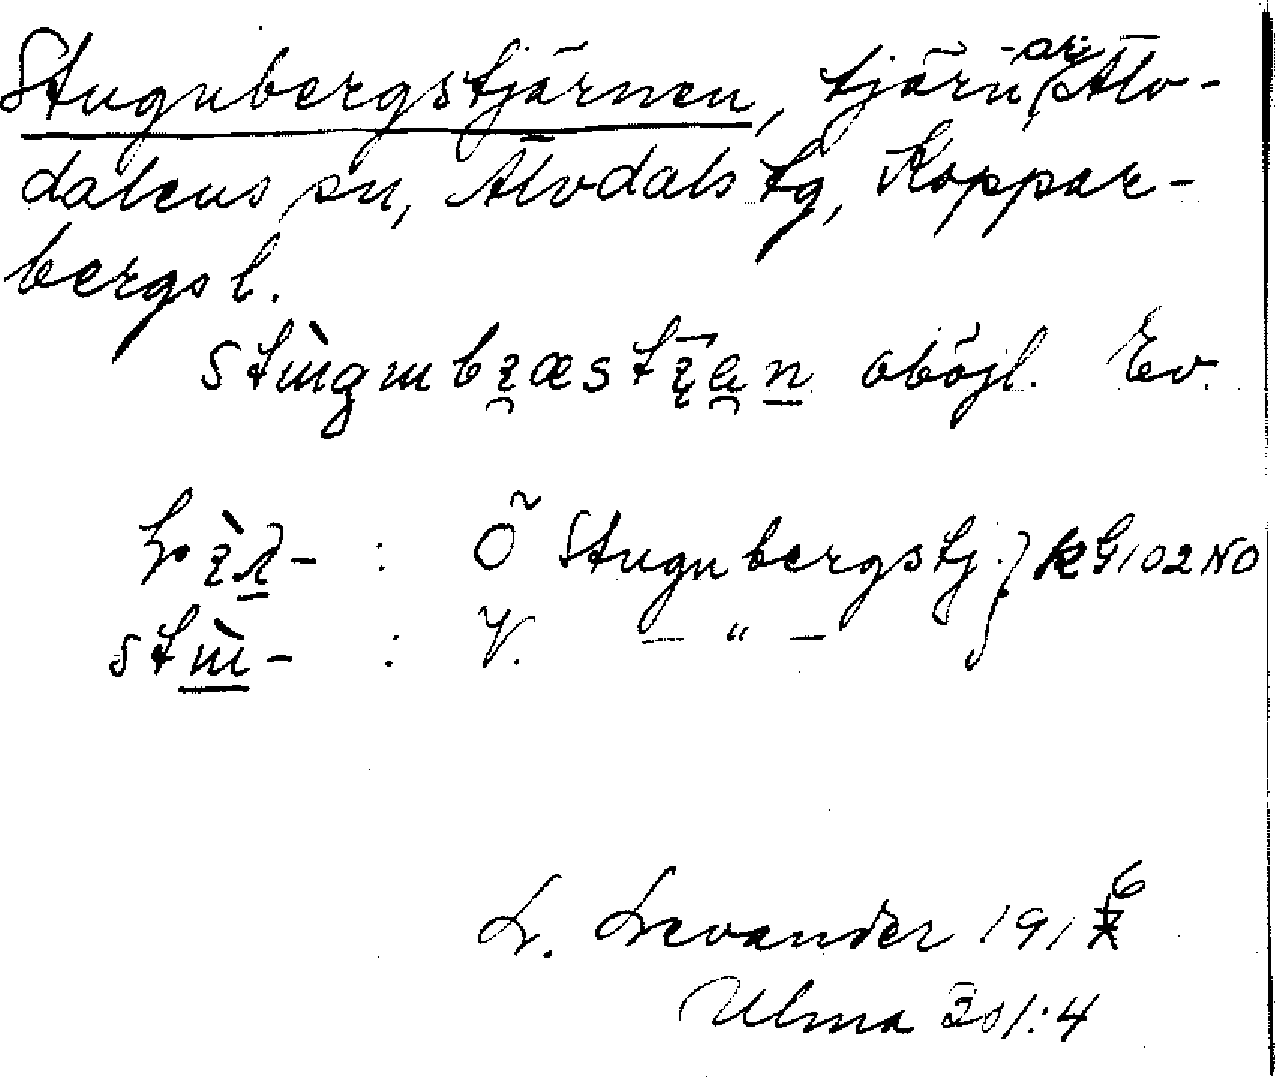 Stugubergstjärnen, tjärn-ar, Älv-
dalens sn, Älvdals tg, Koppar-
bergs l.
oböjl. Ev.
: Ö Stugubergstj. } kG102NO
: V. — " —
L. Levander 1916
Ulma 301:4